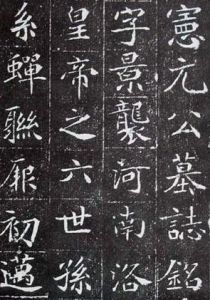 憲元公墓誌銘
字景襲河南洛
皇帝之六世孫
系蟬聯厤初邁